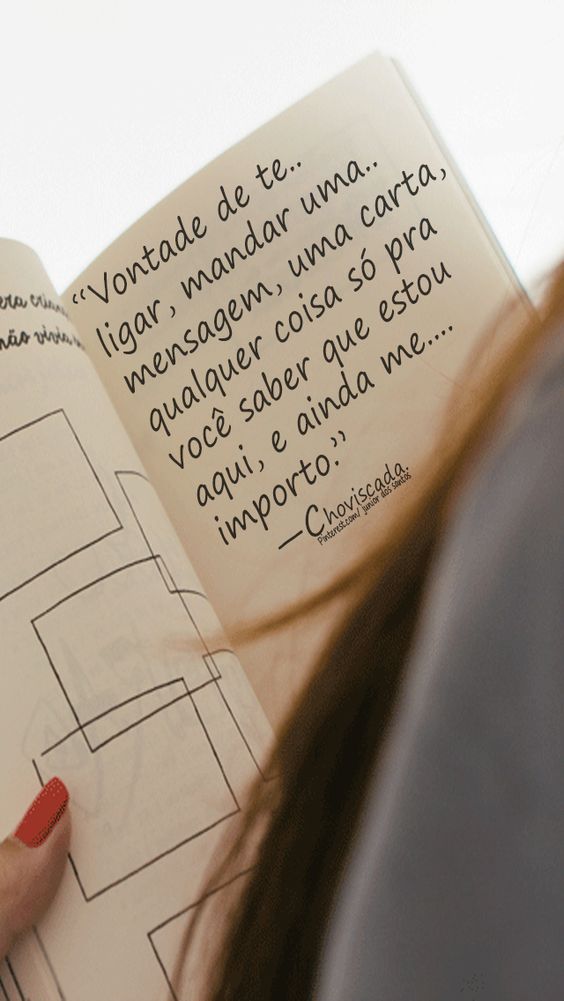 era
não vivia
“Vontade de te..
ligar, mandar uma..
mensagem, uma carta,
qualquer coisa só pra
você saber que estou
aqui, e ainda me....
importo.”
—Choviscada.
Pinterest.com/ junior dos santos